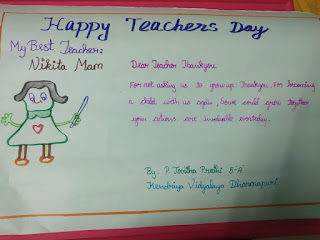 Happy Teachers Day
My Best Teacher:
Nikita Mam
Dear Teacher Thankyou
For not asking us to grow up. Thankyou For becoming
a child with us again, Soure could grow together
your actions are invaluable everyday.
By: P. Joritha Preethi 8-A
Kendriya Vidyalaya Dharmapuri